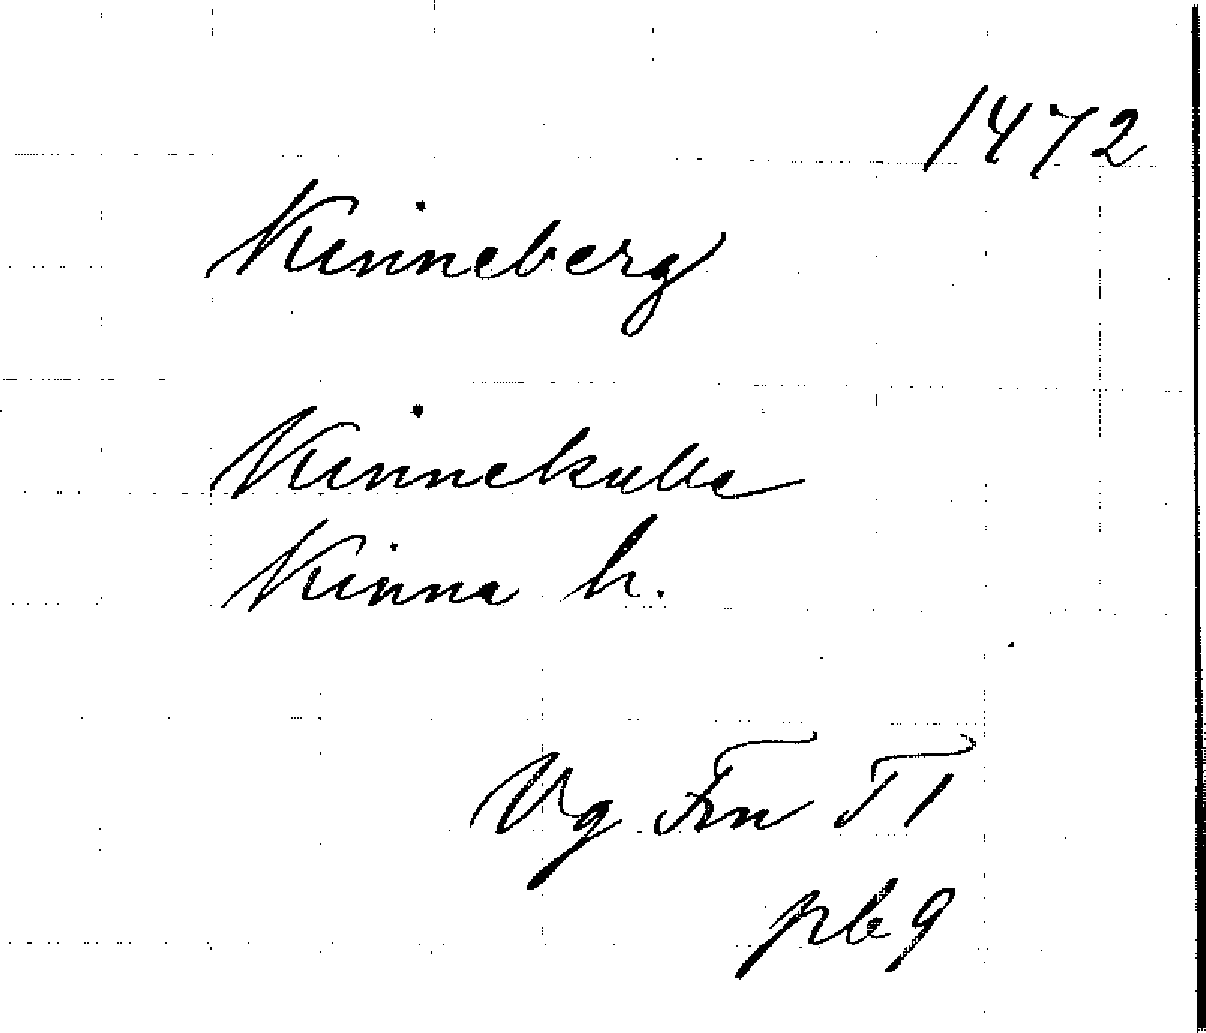 1472
Kinneberg
Kinnekulle
Kinna h.
Vg Frn T1
pb 9